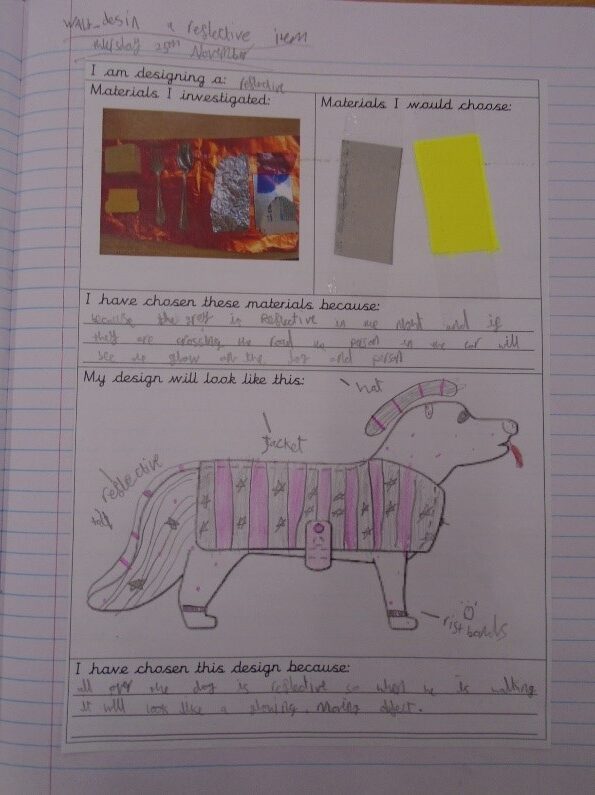 WALT_desin a reflective item
25th November
I am designing a: reflective
Materials I investigated:
Materials I would choose:
I have chosen these materials because:
because the grey is Reflective in the night and if
they are crossing the road the person in the car will
see the glow on the dog and person
My design will look like this:
hat
Jacket
reflective
rist bands
I have chosen this design because:
all over the dog is reflective so when he is walking
it will look like a glowing, moving object.